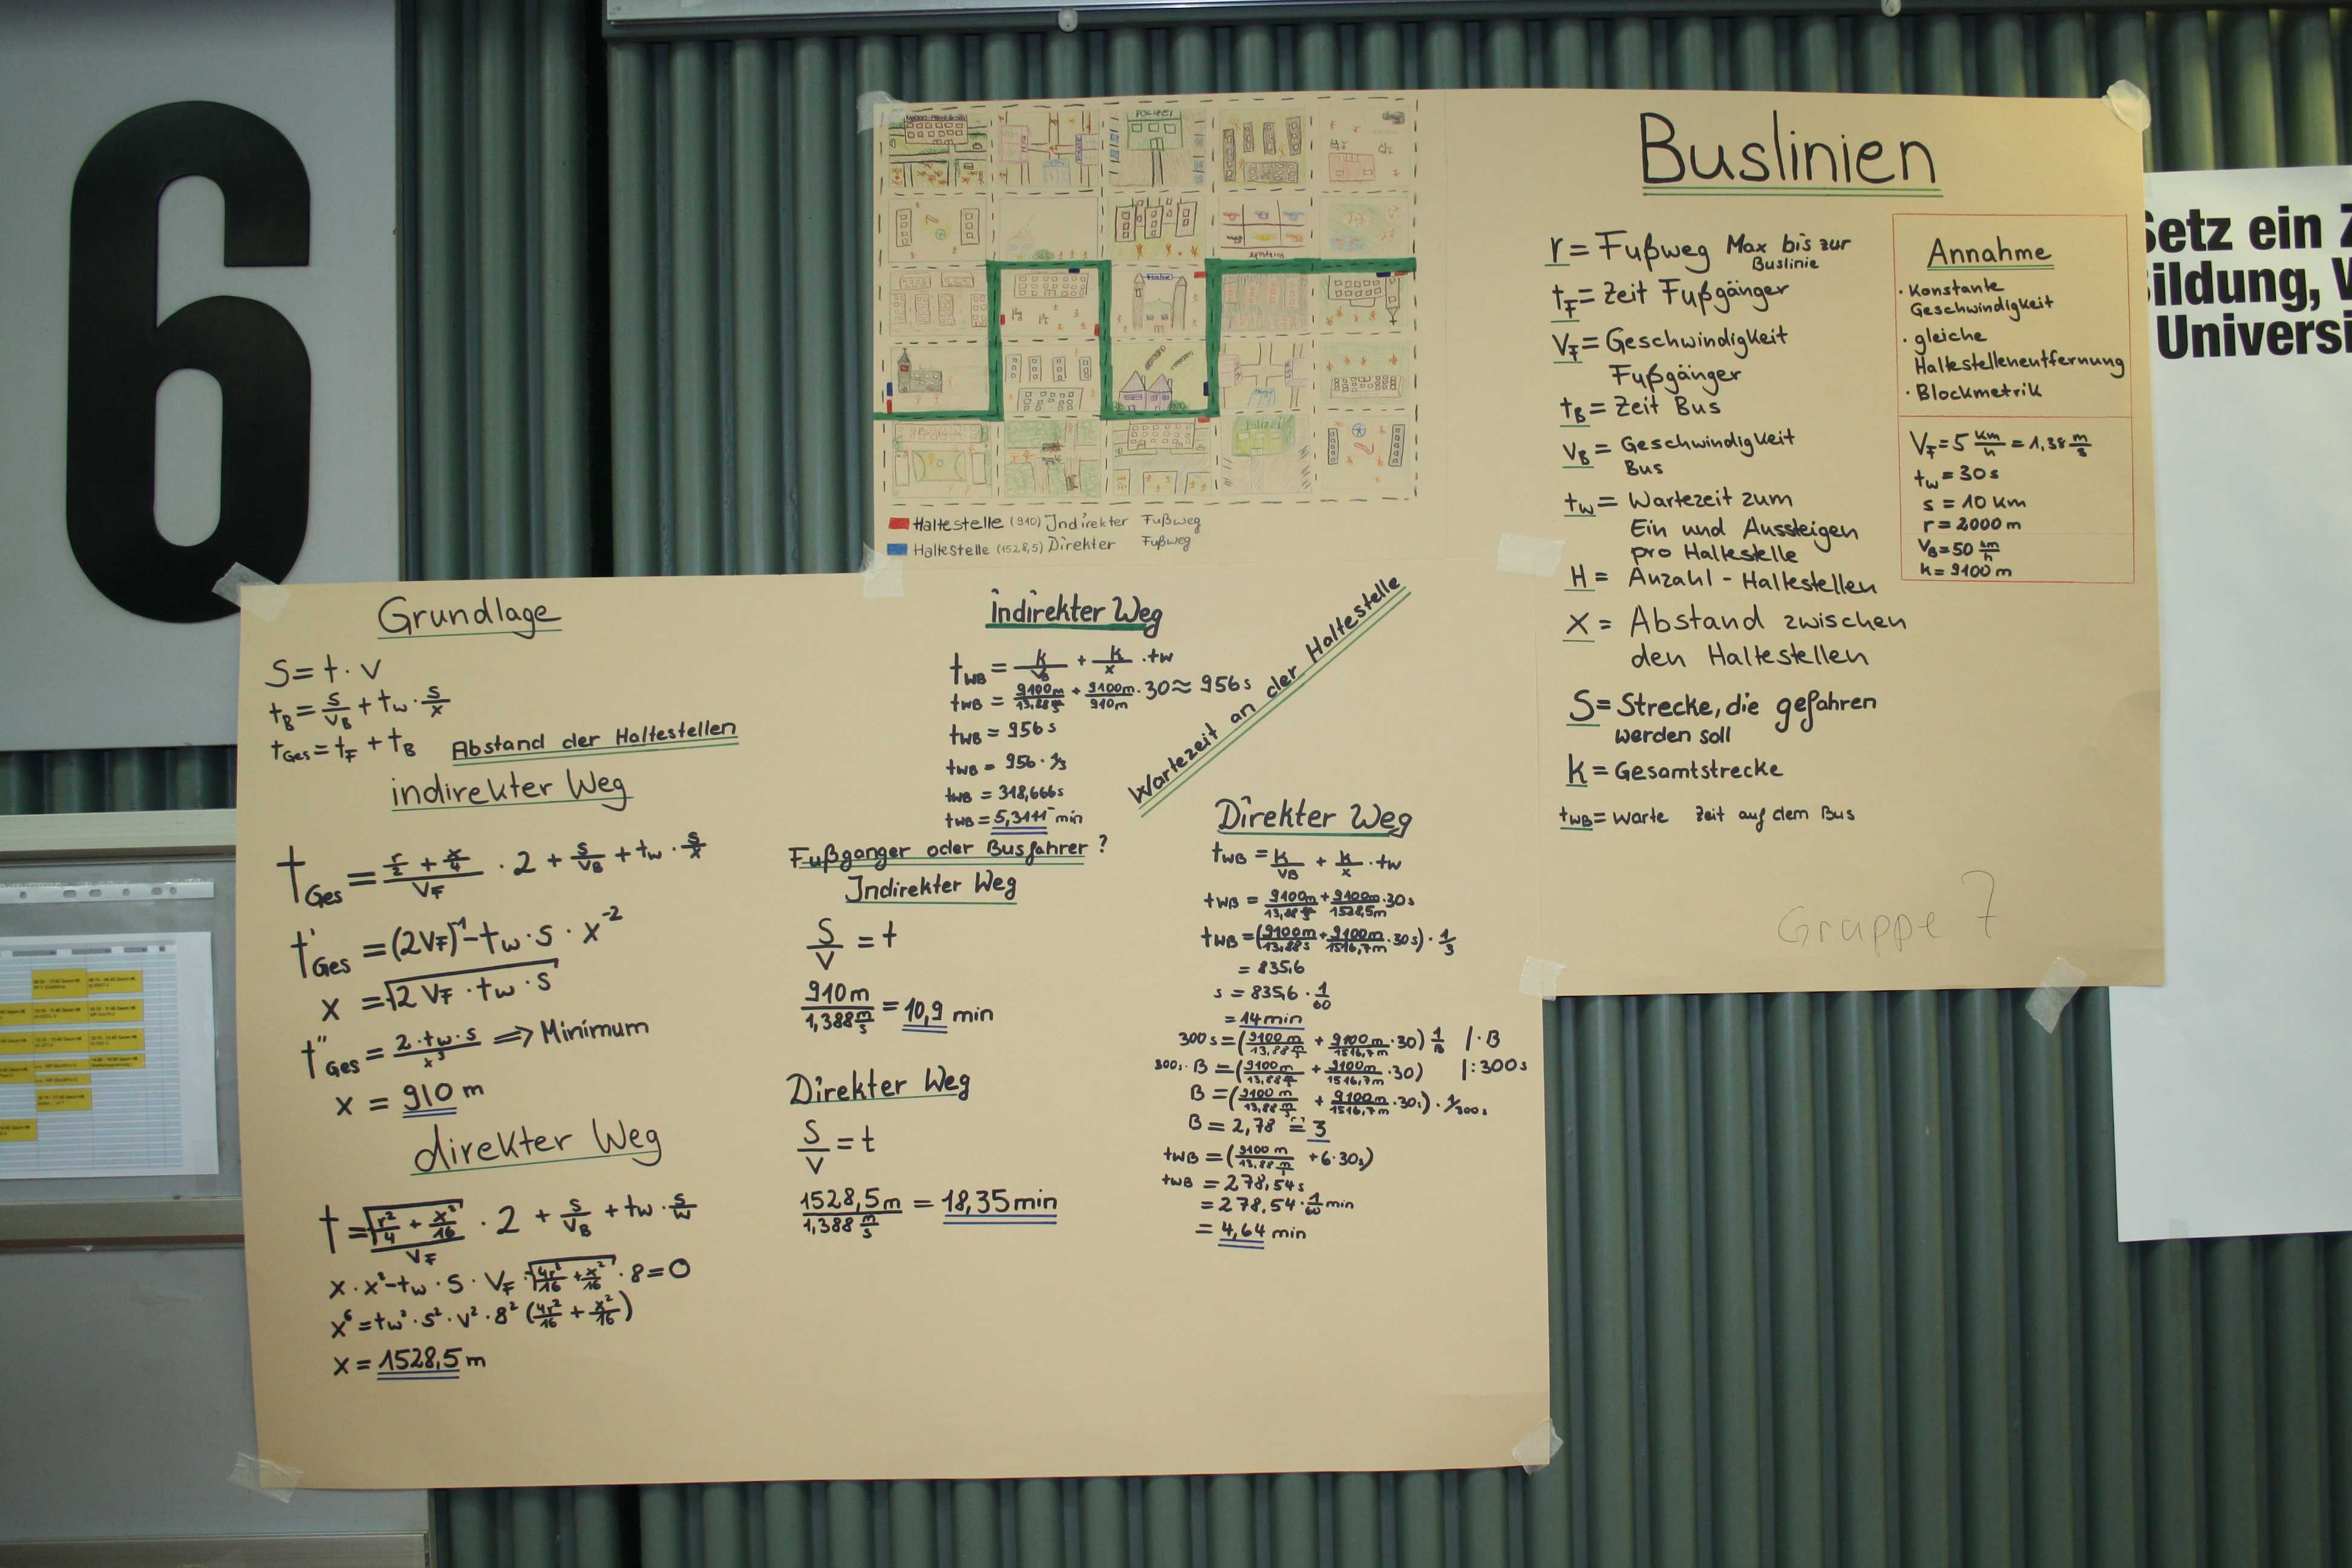 6
POLIZEI
Polizei
Haltestelle (910) Indirekter Fußweg
Haltestelle (1528,5) Direkter Fußweg
Buslinien
r = Fußweg Max bis zur
Buslinie
t_F = Zeit Fußgänger
V_F = Geschwindigkeit
Fußgänger
t_B = Zeit Bus
V_B = Geschwindigkeit
Bus
t_w = Wartezeit zum
Ein und Aussteigen
pro Haltestelle
H = Anzahl - Haltestellen
X = Abstand zwischen
den Haltestellen
S = Strecke, die gefahren
werden soll
k = Gesamtstrecke
t_WB = Warte Zeit auf dem Bus
Gruppe 7
Annahme
· Konstante
Geschwindigkeit
· gleiche
Haltestellenentfernung
· Blockmetrik
V_F = 5 km/h = 1,38 m/s
t_w = 30s
s = 10 km
r = 2000 m
V_B = 50 km/h
k = 9100 m
Setz ein Z
Bildung, W
Universi
Grundlage
S = t · v
t_B = s/v_B + t_w · s/x
t_Ges = t_F + t_B
Abstand der Haltestellen
indirekter Weg
t_Ges = (r/2 + x/4)/V_F · 2 + s/V_B + t_w · s/x
t'_Ges = (2V_F)^-1 - t_w · s · x^-2
x = √(2 V_F · t_w · s)
t''_Ges = 2·t_w·s/x³ ⇒ Minimum
x = 910 m
direkter Weg
t = √(r²/4 + x²/16)/V_F · 2 + s/V_B + t_w · s/w
x · x² - t_w · s · V_F · √(4r²/16 + x²/16) · 8 = 0
x⁶ = t_w² · s² · v² · 8² (4r²/16 + x²/16)
x = 1528,5 m
indirekter Weg
t_WB = k/V_B + k/x · t_w
t_WB = 9100m/13,88 m/s + 9100m/910m · 30 ≈ 956s
t_WB = 956s
t_WB = 956 · 1/3
t_WB = 318,666s
t_WB = 5,3111 min
Wartezeit an der Haltestelle
Fußgänger oder Busfahrer?
Indirekter Weg
S/V = t
910m / 1,388 m/s = 10,9 min
Direkter Weg
S/V = t
1528,5m / 1,388 m/s = 18,35 min
Direkter Weg
t_WB = k/V_B + k/x · t_w
t_WB = 9100m/13,88 m/s + 9100m/1528,5m · 30s
t_WB = (9100m/13,88s + 9100m/1516,7m · 30s) · 1/3
= 835,6
s = 835,6 · 1/60
= 14 min
300s = (9100m/13,88 m/s + 9100m/1516,7m · 30) 1/B |·B
300s · B = (9100m/13,88 m/s + 9100m/1516,7m · 30) |:300s
B = (9100m/13,88 m/s + 9100m/1516,7m · 30s) · 1/300s
B = 2,78 = 3
t_WB = (9100m/13,88 m/s + 6·30s)
t_WB = 278,54s
= 278,54 · 1/60 min
= 4,64 min